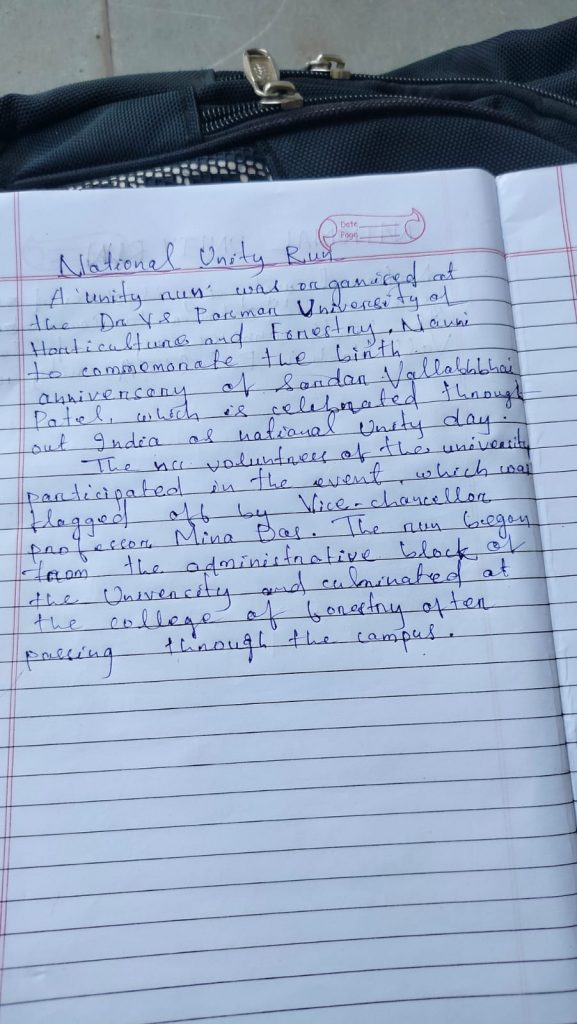 Date
Page
National Unity Run
A 'unity run' was organised at
the Dr Y.S Parmar University of
Horticulture and Forestry, Nauni
to commemorate the birth
anniversary of Sardar Vallabhbhai
Patel, which is celebrated through
out India as national Unity day.
The ncc volunteers of the univercity
participated in the event, which was
flagged off by Vice-chancellor
professor Mina Das. The run began
from the administrative block of
the Univercity and culminated at
the college of forestry after
passing through the campus.